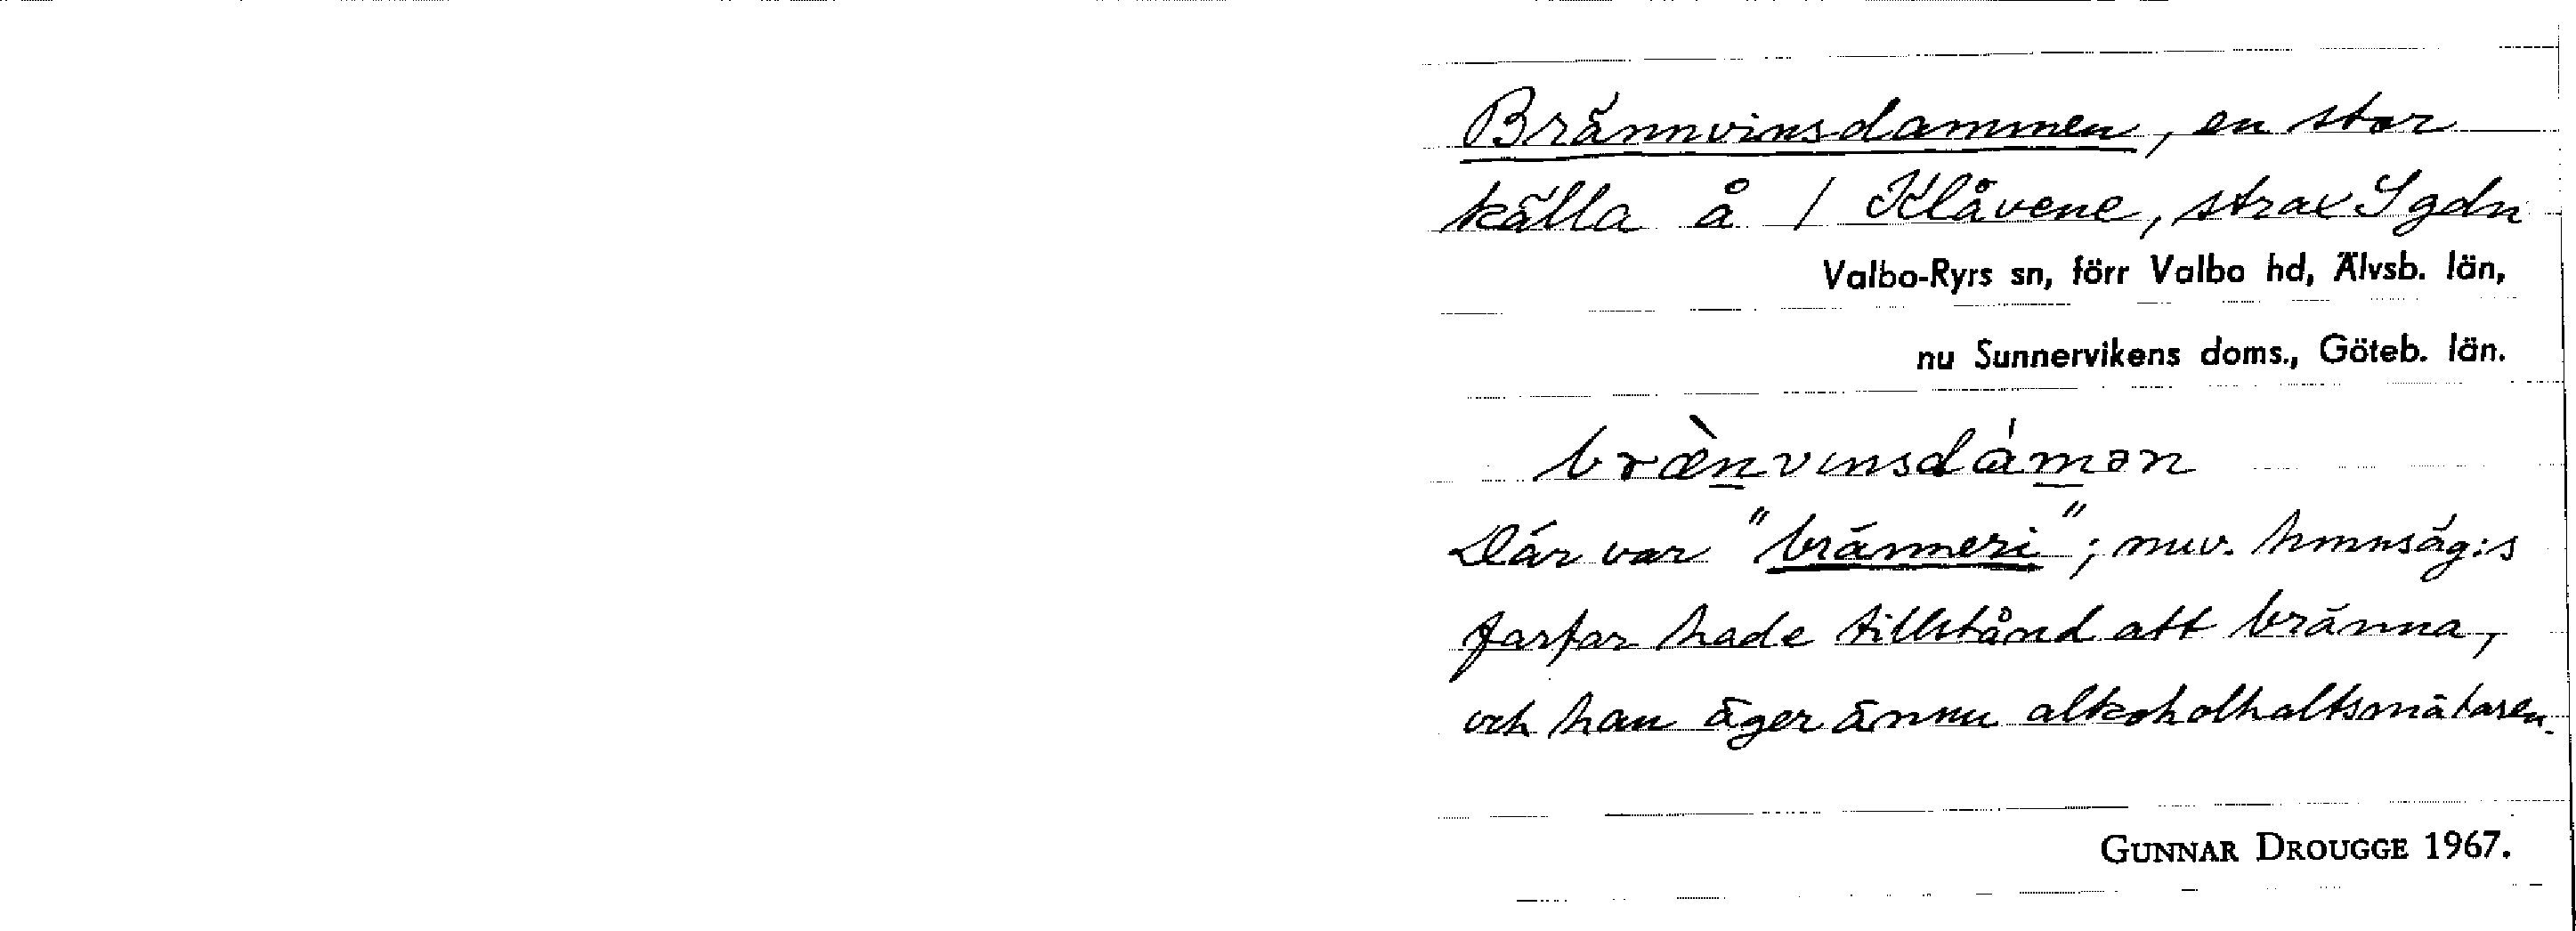 Brännvinsdammen, en stor
källa å 1 Klåvene, strax S gdn
Valbo-Ryrs sn, förr Valbo hd, Älvsb. län,
nu Sunnervikens doms., Göteb. län.
bræ̀nvinsdámən
Där var "bränneri"; nuv. hmnsäg:s
farfar hade tillstånd att bränna,
och han äger ännu alkoholhaltsmätaren.
GUNNAR DROUGGE 1967.